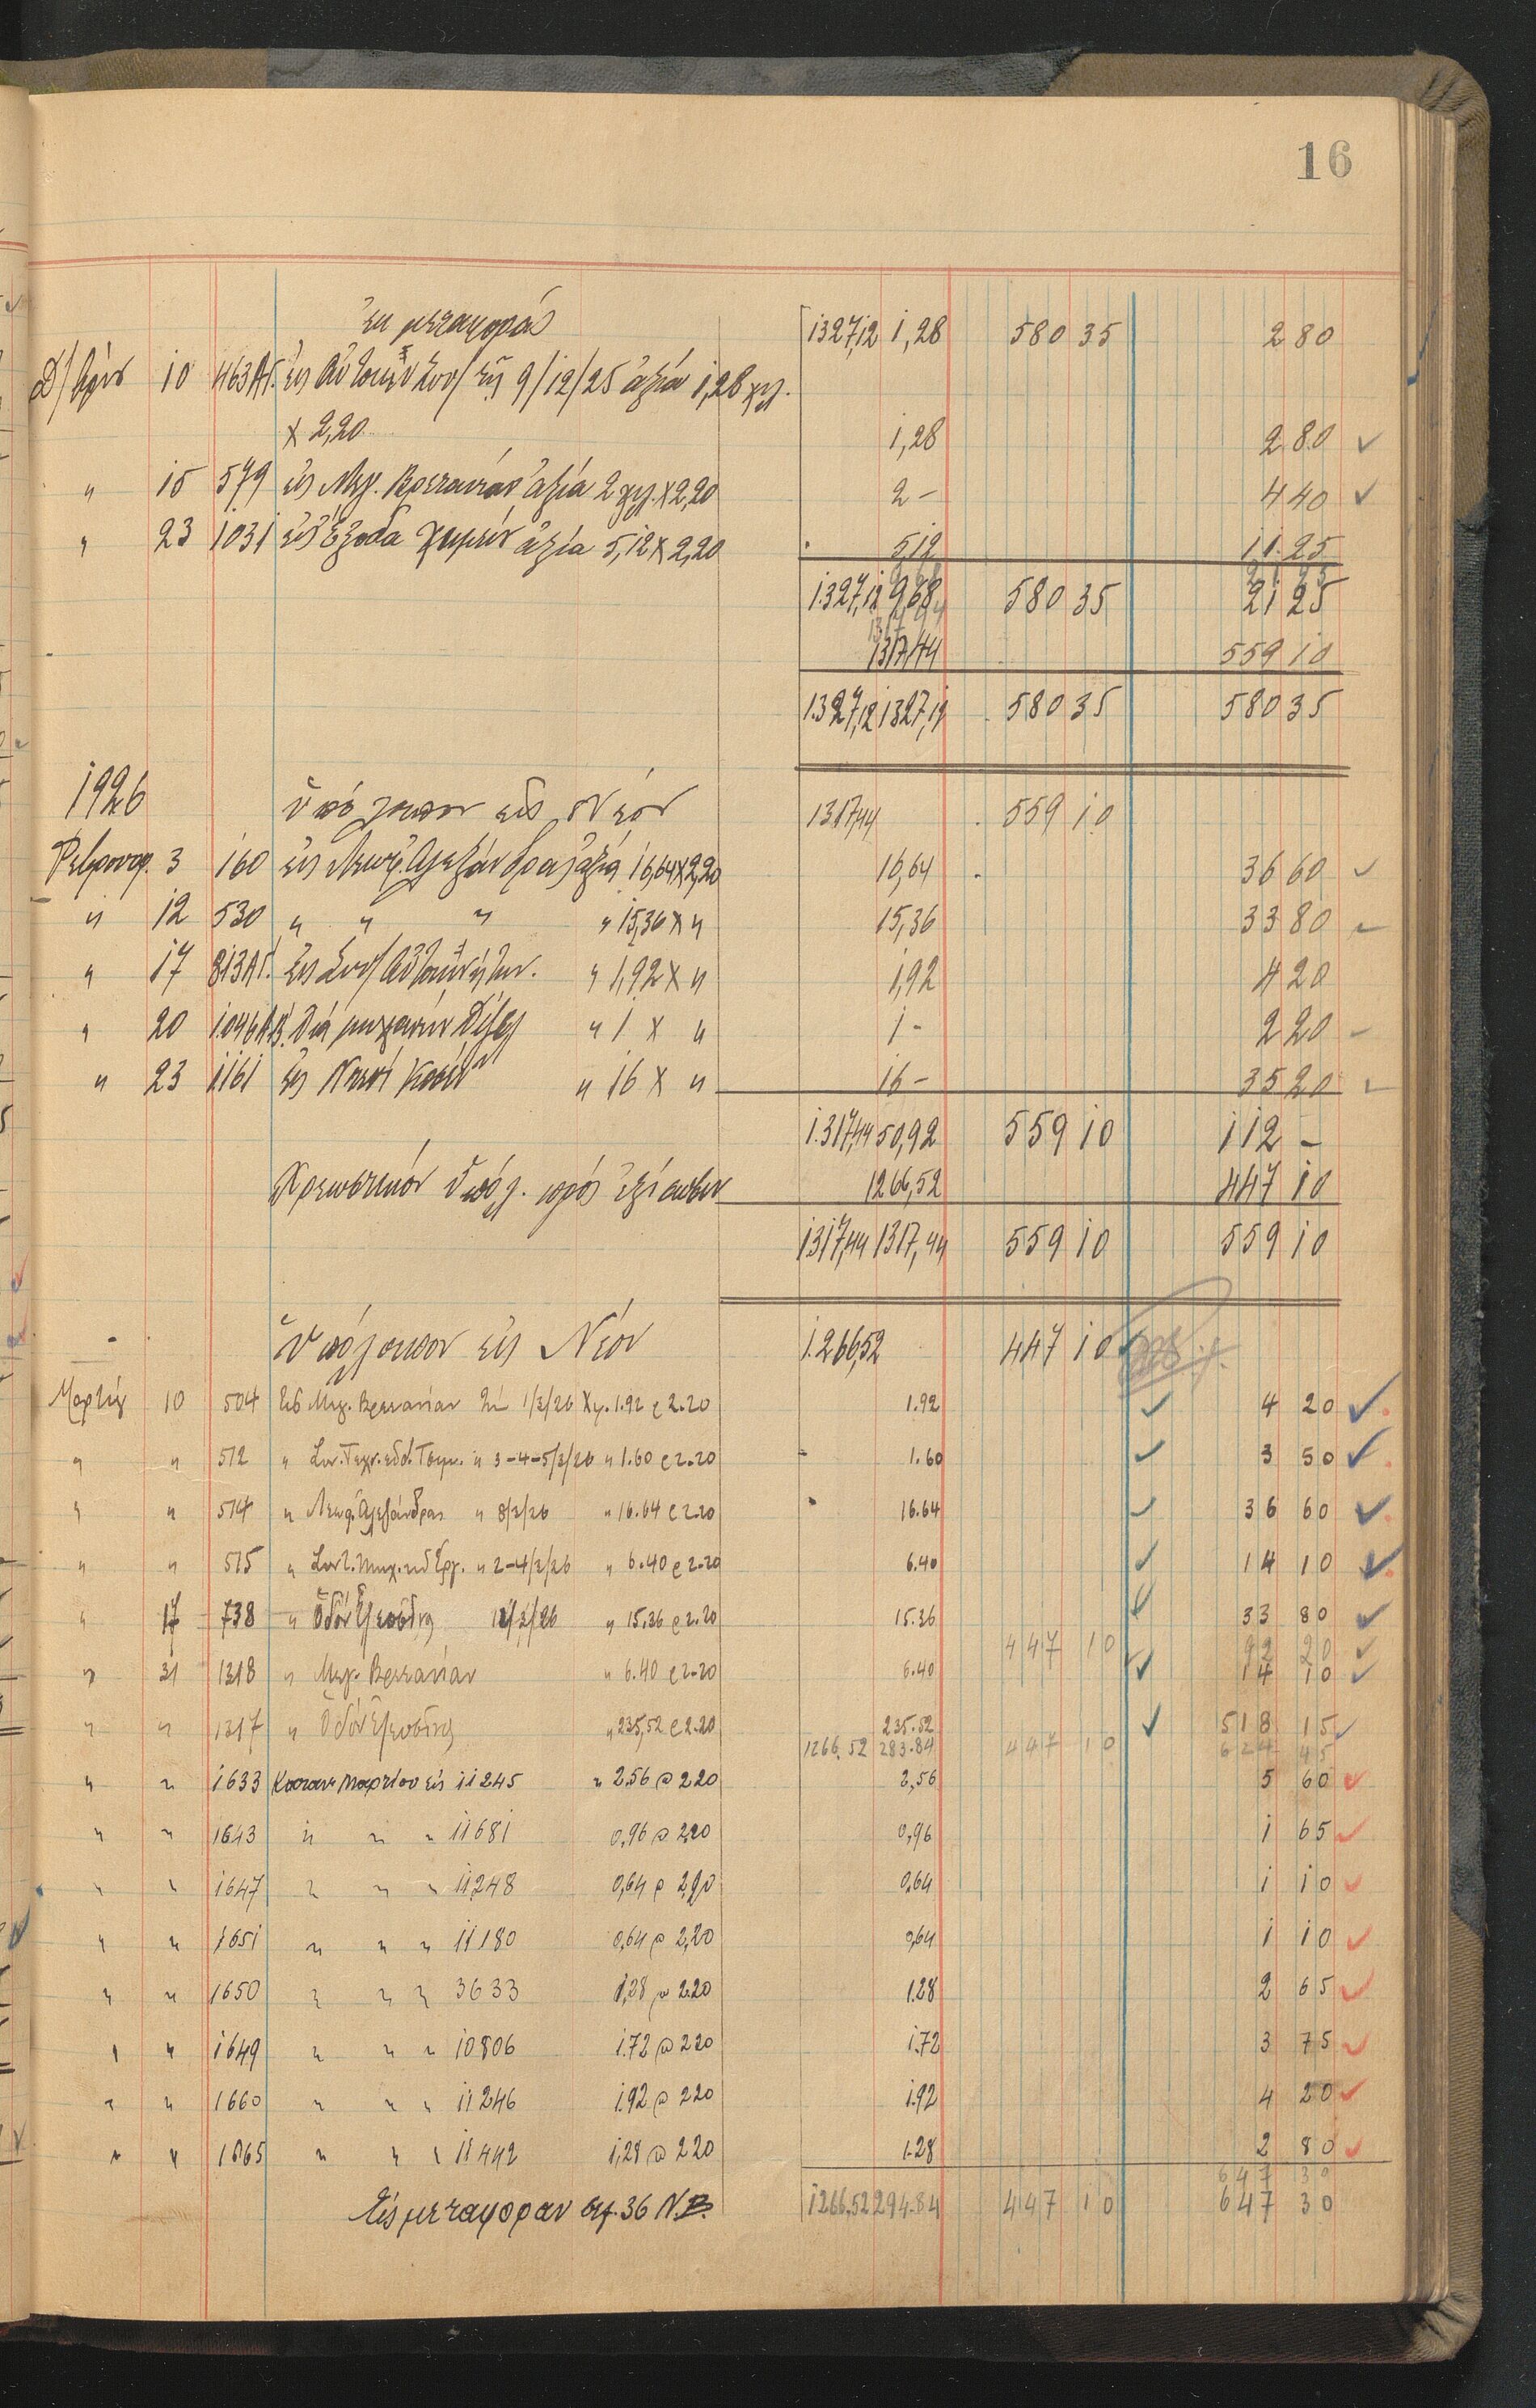 16
Ἐκ μεταφορᾶς 1327,12 1,28 580 35 2 80
Δ/βρίου 10 463ΑΓ. εἰς 9/12/25 ἀξία 1,28 χιλ.
x 2,20 1,28 2 80
" 15 579 εἰς Μεγ. Βρεταννίαν ἀξία 2 χιλ. x 2,20 2 – 4 40
" 23 1031 εἰς Ἔξοδα ἀξία 5,12 x 2,20 5,12 11 25
1.327,12 9,68 580 35 21 25
1317,44 559 10
1.327,12 1327,12 580 35 580 35
1926 ὑπόλοιπον εἰς Νέον 1317,44 559 10
Φεβρουαρ. 3 160 εἰς Λεωφ. Ἀλεξάνδρας ἀξία 16,64 x 2,20 16,64 36 60
" 12 530 " " " " 15,36 x " 15,36 33 80
" 17 813ΑΓ. εἰς " 1,92 x " 1,92 4 20
" 20 1046ΑΒ. διά μηχανήν " 1 x " 1 – 2 20
" 23 1161 εἰς " 16 x " 16 – 35 20
1.317,44 50,92 559 10 112 –
Χρεωστικόν ὑπόλ. πρός ἐξίσωσιν 1266,52 447 10
1317,44 1317,44 559 10 559 10
Ὑπόλοιπον εἰς Νέον 1.266,52 447 10
Μαρτίου 10 504 εἰς Μεγ. Βρεταννίαν 1/3/26 Χγ. 1.92 @ 2.20 1.92 4 20
" " 512 " " 3-4-5/3/26 " 1.60 @ 2.20 1.60 3 50
" " 514 " Λεωφ. Ἀλεξάνδρας " 8/3/26 " 16.64 @ 2.20 16.64 36 60
" " 515 " " 2-4/3/26 " 6.40 @ 2.20 6.40 14 10
" 17 738 " Ὁδόν Ἐλευσῖνος 12/3/26 " 15.36 @ 2.20 15.36 33 80
447 10 92 20
" 31 1318 " Μεγ. Βρεταννίαν " 6.40 @ 2.20 6.40 14 10
" " 1317 " Ὁδόν Ἐλευσῖνος " 235,52 @ 2.20 235.52 518 15
1266,52 283.84 447 10 624 45
" " 1633 Μαρτίου εἰς 11245 " 2,56 @ 220 2,56 5 60
" " 1643 " " " 11681 0,96 @ 2,20 0,96 1 65
" " 1647 " " " 11248 0,64 @ 2,20 0,64 1 10
" " 1651 " " " 11180 0,64 @ 2,20 0,64 1 10
" " 1650 " " " 3633 1,28 @ 2.20 1.28 2 65
" " 1649 " " " 10806 1.72 @ 220 1.72 3 75
" " 1660 " " " 11246 1.92 @ 220 1.92 4 20
" " 1665 " " " 11442 1,28 @ 220 1.28 2 80
647 30
Εἰς μεταφοράν σελ. 36 Ν.Β. 1266,52 294.84 447 10 647 30